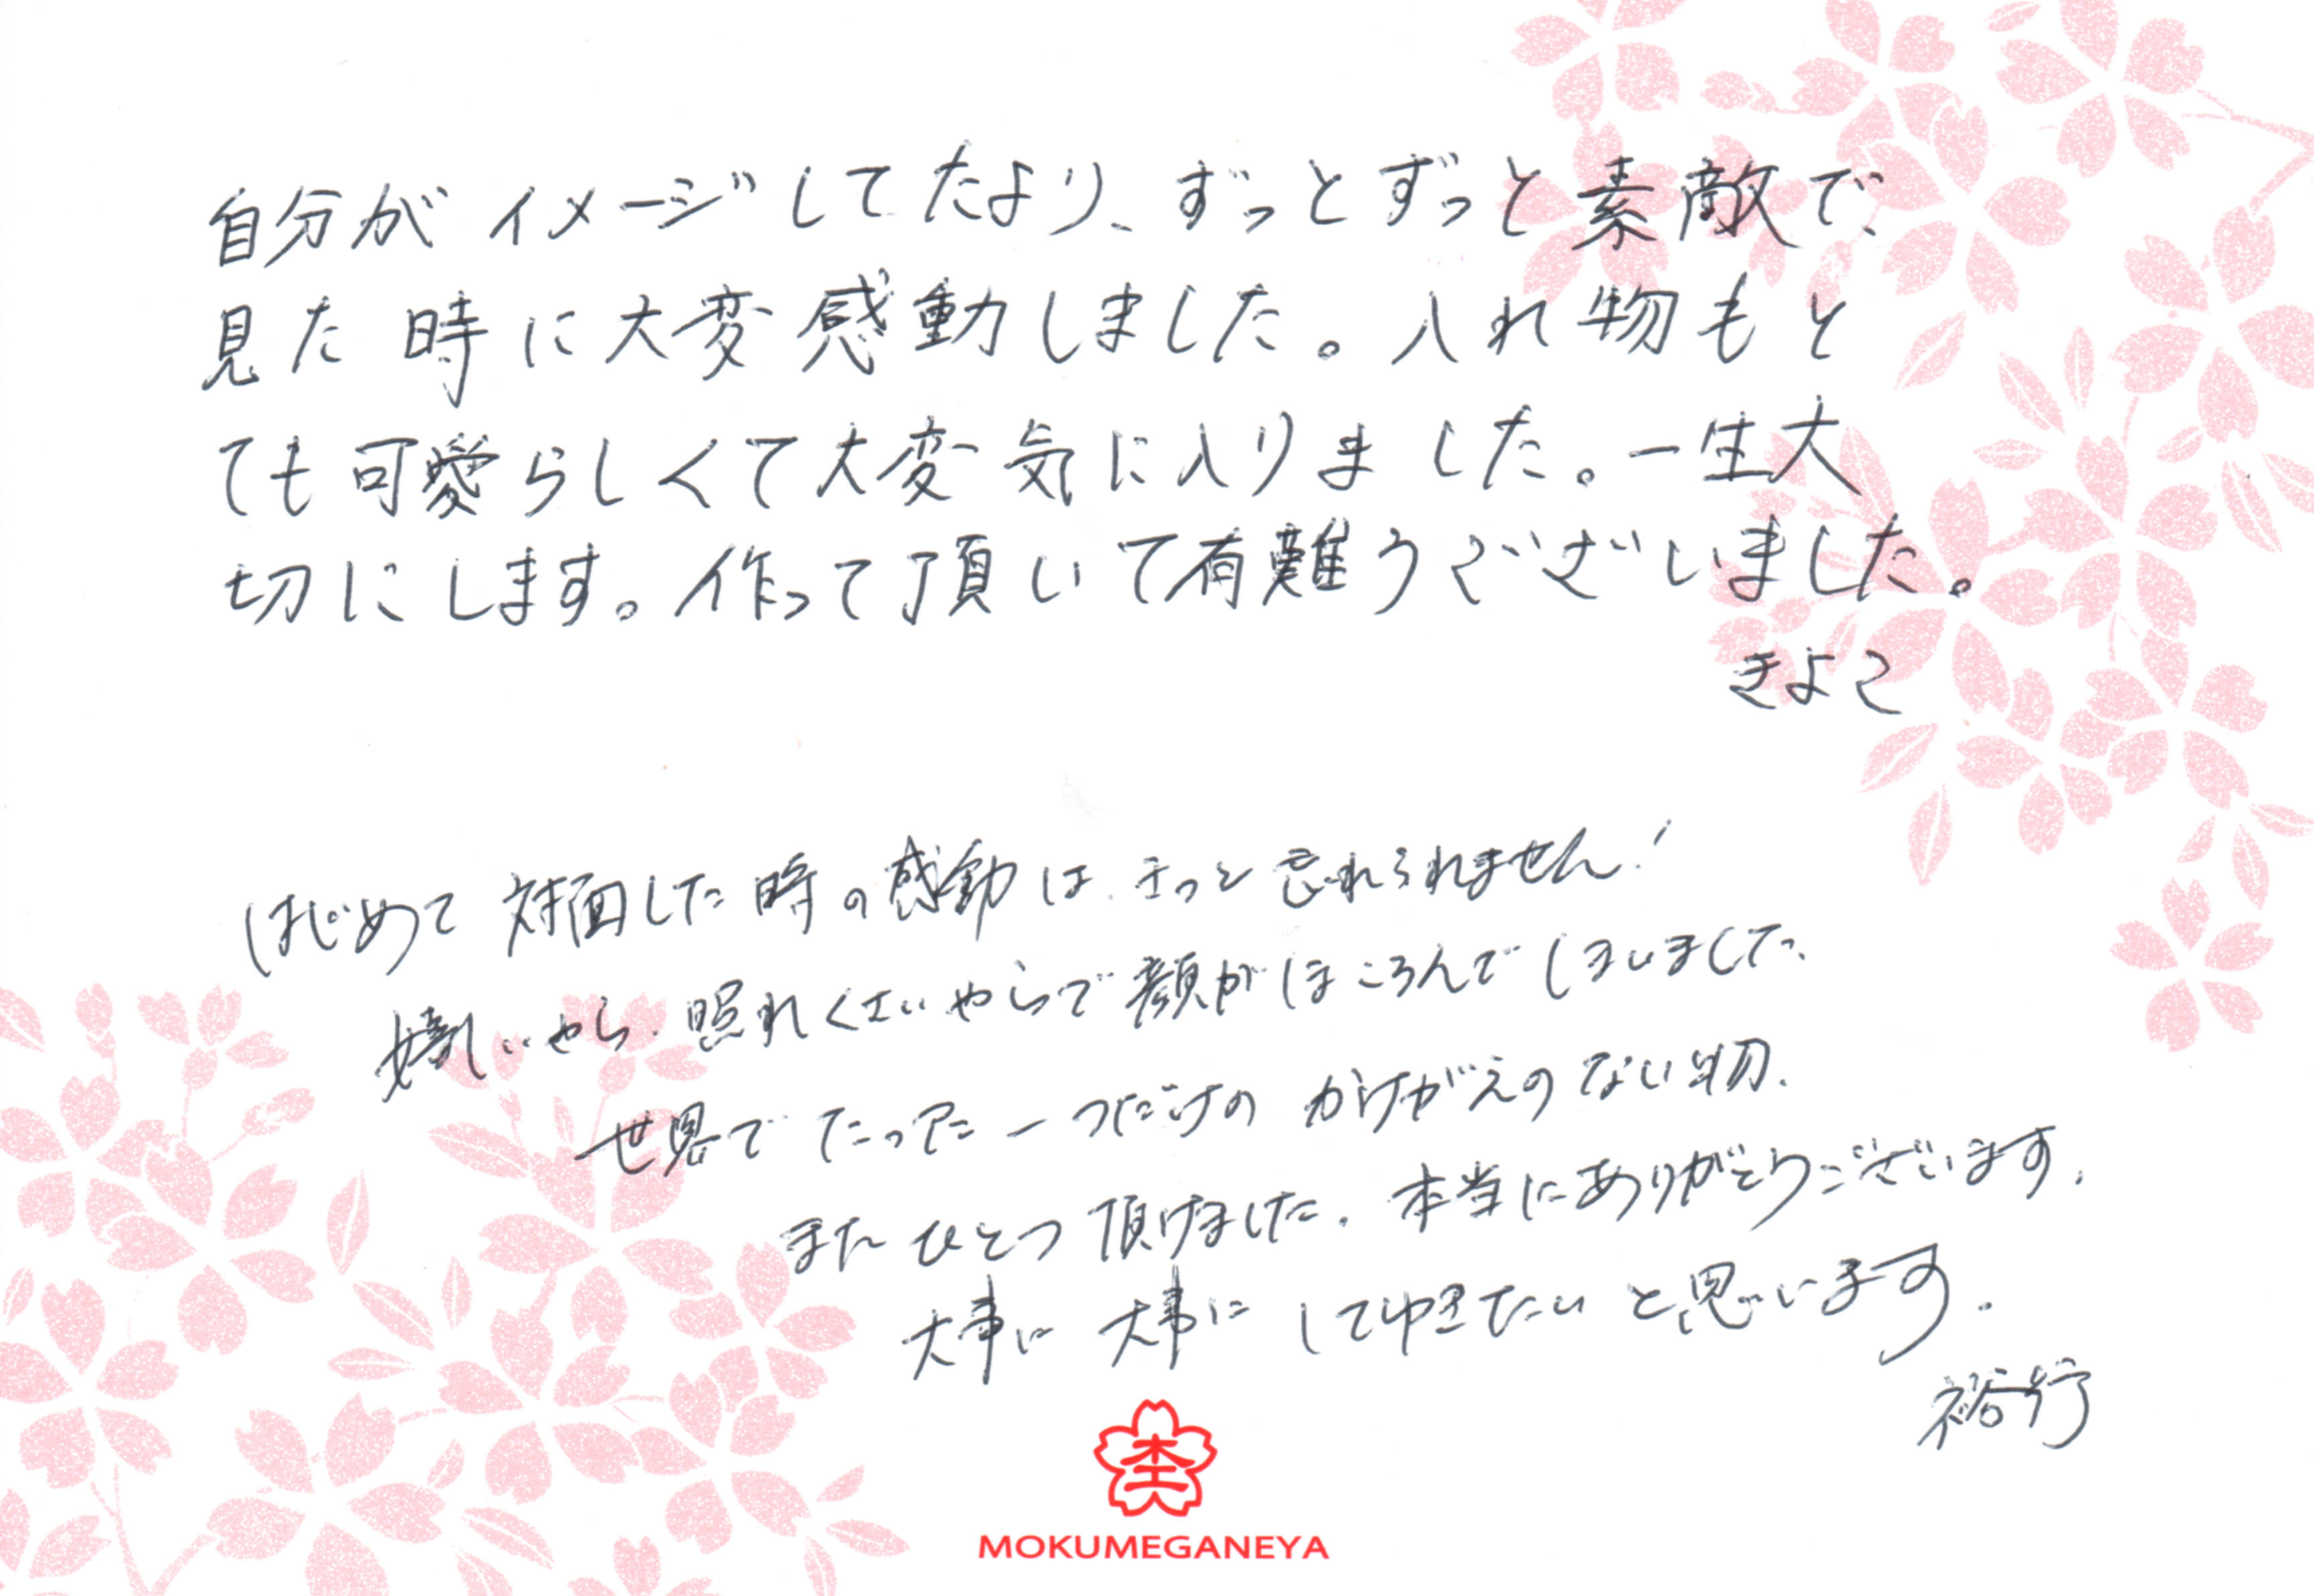 自分がイメージしてたより、ずっとずっと素敵で、
見た時に大変感動しました。入れ物もと
ても可愛らしくて大変気に入りました。一生大
切にします。作って頂いて有難うございました。
きよこ
はじめて対面した時の感動は、きっと忘れられません!
嬉しいやら、照れくさいやらで顔がほころんでしまいました、
世界でたった一つだけのかけがえのない物、
またひとつ頂けました。本当にありがとうございます。
大事に大事にしてゆきたいと思います。
裕行
杢
MOKUMEGANEYA